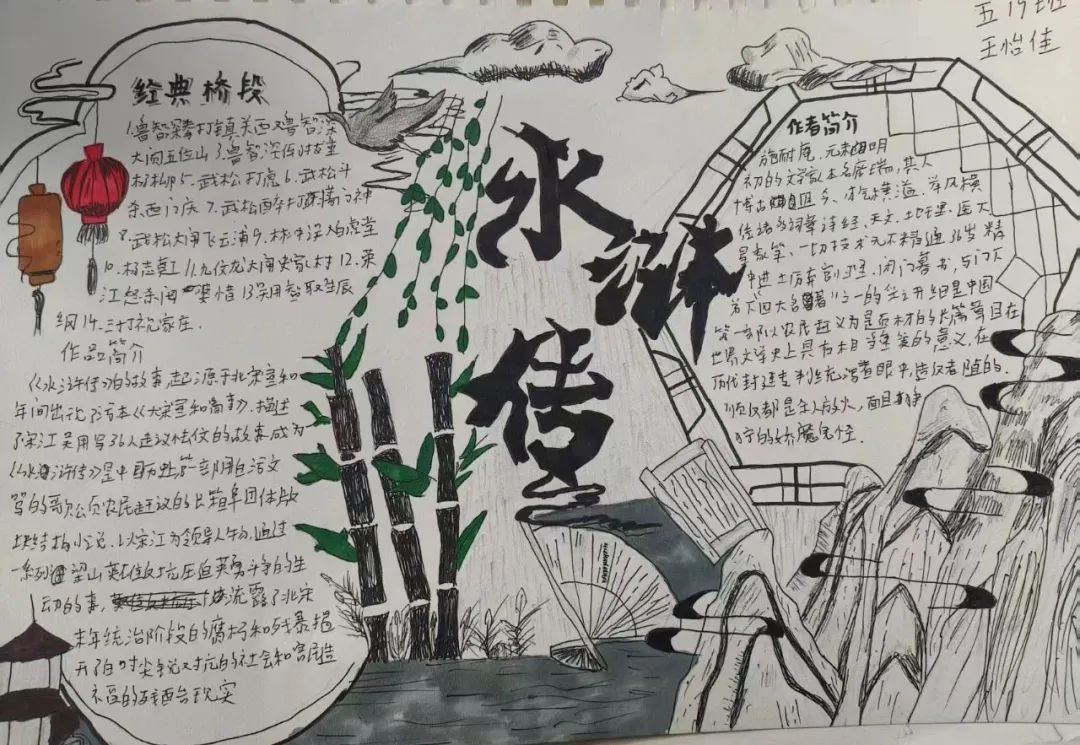 五19班
王怡佳
水浒传
经典桥段
1.鲁智深拳打镇关西 2.鲁智深
大闹五台山 3.鲁智深倒拔垂
杨柳 5.武松打虎 6.武松斗
杀西门庆 7.武松醉打蒋门神
8.武松大闹飞云浦 9.林冲误入白虎堂
10.杨志卖刀 11.九纹龙大闹史家村 12.宋
江怒杀阎婆惜 13.吴用智取生辰
纲 14.三打祝家庄.
作品简介
《水浒传》的故事起源于北宋宣和
年间出现了话本《大宋宣和遗事》描述
了宋江吴用等36人起义
的故事成为
《水浒传》是中国历史第一部用白话文
写的歌公页农民起义的长篇
块结构小说.以宋江为领导人物,通过
一系列梁山英雄反抗压迫英勇斗争的生
动的事,
流露了北宋
末年统治阶段的腐朽和残暴揭
开了白时尖锐对抗的社会和
的现实
作者简介
施耐庵.元末明
初的文学家本名彦端,其人
博古
今、才气横溢.举凡横
诸子词章诗经、天文、地理、医大
星象等.一切技术无不精通36岁
中进士
闭门
书,与门下
弟
四大名著之一的
是中国
第一部以农民起义为
材的长篇
在
世界文学史上具有相当
的意义.在
历代封建专制统治者眼
造反者随的.
放火,面目狰
狞的妖魔鬼怪.